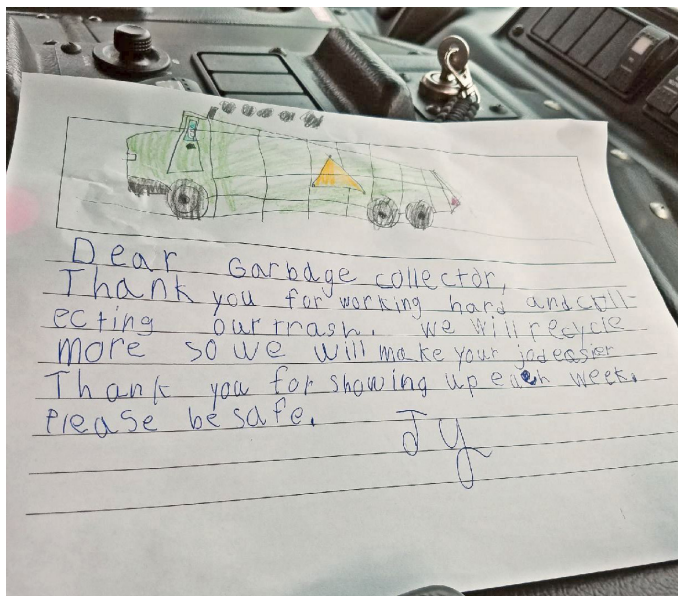 Dear Garbage collector,
Thank you for working hard and coll-
ecting our trash. We will recycle
more so we will make your jod easier
Thank you for showing up each week.
Please be safe.
Jy